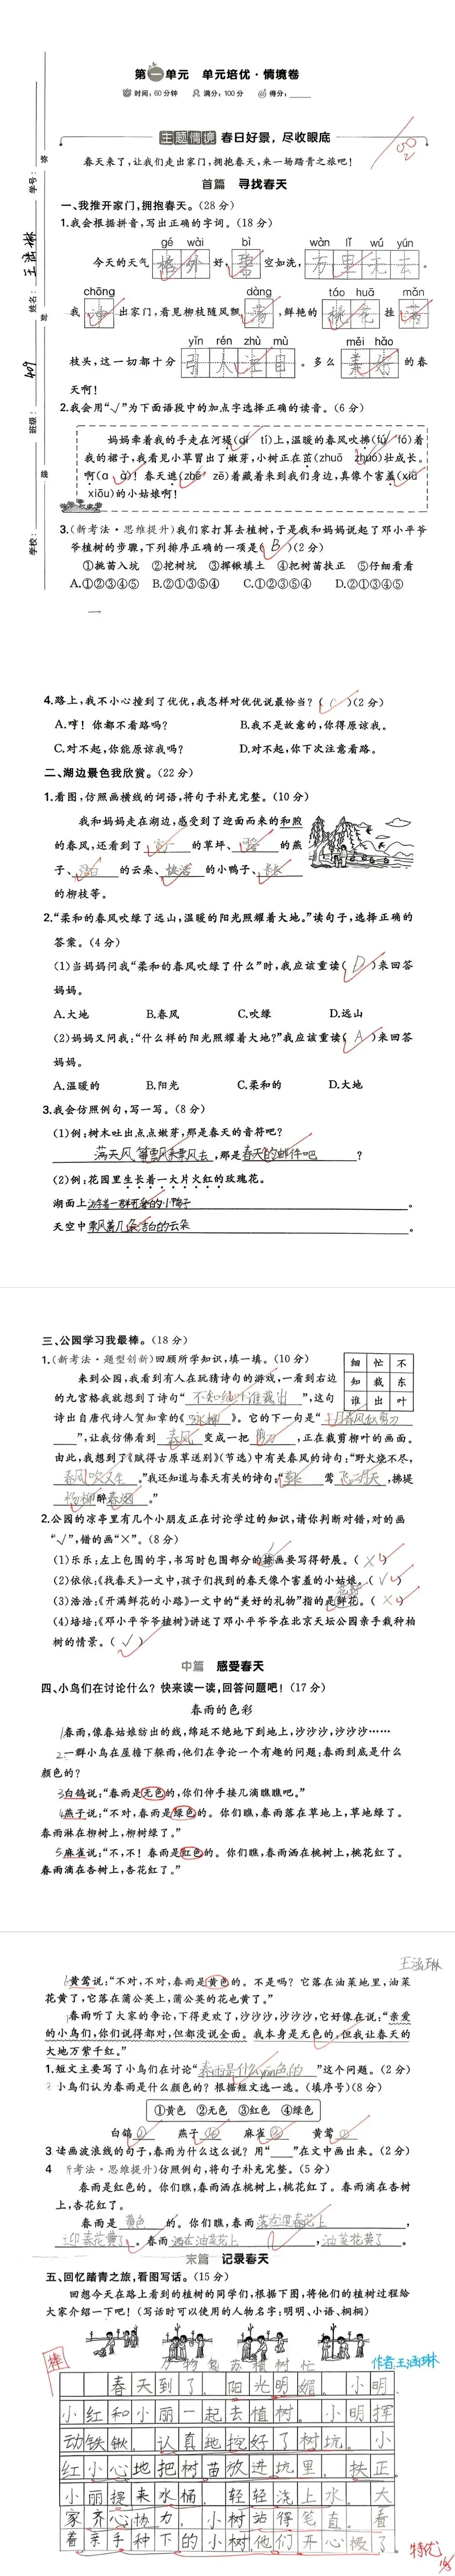 第一单元 单元培优·情境卷
时间:60分钟 满分:100分 得分:
主题情境 春日好景,尽收眼底
春天来了,让我们走出家门,拥抱春天,来一场踏青之旅吧!
首篇 寻找春天
学校: 班级: 409 姓名: 王涵琳 学号:
弥 封 线
一、我推开家门,拥抱春天。(28分)
1.我会根据拼音,写出正确的字词。(18分)
gé wài bì wàn lǐ wú yún
今天的天气格外好,碧空如洗,万里无云。
chōng dàng táo huā mǎn
我冲出家门,看见柳枝随风飘荡,鲜艳的桃花挂满
yǐn rén zhù mù měi hǎo
枝头,这一切都十分引人注目。多么美好的春
天啊!
2.我会用“√”为下面语段中的加点字选择正确的读音。(6分)
妈妈牵着我的手走在河堤(dī tí)上,温暖的春风吹拂(fú fó)着
我的裙子,我看见小草冒出了嫩芽,小树正在茁(zhuō zhuó)壮成长。
啊(a à)!春天遮(zhē zē)着藏着来到我们身边,真像个害羞(xiū
xiōu)的小姑娘啊!
3.(新考法·思维提升)我们家打算去植树,于是我和妈妈说起了邓小平爷
爷植树的步骤,下列排序正确的一项是( B )(2分)
①挑苗入坑 ②挖树坑 ③挥锹填土 ④把树苗扶正 ⑤仔细看看
A.①②③④⑤ B.②①③⑤④ C.①②③⑤④ D.②①③④⑤
4.路上,我不小心撞到了优优,我怎样对优优说最恰当?( C )(2分)
A.哼!你都不看路吗? B.我不是故意的,你得原谅我。
C.对不起,你能原谅我吗? D.对不起,你下次注意看路。
二、湖边景色我欣赏。(22分)
1.看图,仿照画横线的词语,将句子补充完整。(10分)
我和妈妈走在湖边,感受到了迎面而来的和煦
的春风,还看到了宽广的草坪、的燕
子、洁白的云朵、快活的小鸭子、长长
的柳枝等。
2.“柔和的春风吹绿了远山,温暖的阳光照耀着大地。”读句子,选择正确的
答案。(4分)
(1)当妈妈问我“柔和的春风吹绿了什么”时,我应该重读( D )来回答
妈妈。
A.大地 B.春风 C.吹绿 D.远山
(2)妈妈又问我:“什么样的阳光照耀着大地?”我应该重读( A )来回答
妈妈。
A.温暖的 B.阳光 C.柔和的 D.大地
3.我会仿照例句,写一写。(8分)
(1)例:树木吐出点点嫩芽,那是春天的音符吧?
满天风筝飘来飘去,那是春天的邮件吧?
(2)例:花园里生长着一大片火红的玫瑰花。
湖面上游着一群可爱的小鸭子。
天空中飘着几朵洁白的云朵。
三、公园学习我最棒。(18分)
1.(新考法·题型创新)回顾所学知识,填一填。(10分)
细 忙 不
知 裁 东
谁 出 叶
来到公园,我看到有人在玩猜诗句的游戏,一看到右边
的九宫格我就想到了诗句“不知细叶谁裁出”,这句
诗出自唐代诗人贺知章的《咏柳》。它的下一句是“二月春风似剪刀
”,让我仿佛看到春风变成一把剪刀,正在裁剪柳叶的画面。
由此,我想到了《赋得古原草送别》(节选)中有关春风的诗句:“野火烧不尽,
春风吹又生。”我还知道与春天有关的诗句:“草长莺飞二月天,拂堤
杨柳醉春烟。”
2.公园的凉亭里有几个小朋友正在讨论学过的知识,请你判断对错,对的画
“√”,错的画“×”。(8分)
(1)乐乐:左上包围的字,书写时包围部分的撇画要写得舒展。( × )
(2)依依:《找春天》一文中,孩子们找到的春天像个害羞的小姑娘。( √ )
(3)浩浩:《开满鲜花的小路》一文中的“美好的礼物”指的是鲜花。( × )
(4)培培:《邓小平爷爷植树》讲述了邓小平爷爷在北京天坛公园亲手栽种柏
树的情景。( √ )
中篇 感受春天
四、小鸟们在讨论什么?快来读一读,回答问题吧!(17分)
春雨的色彩
1春雨,像春姑娘纺出的线,绵延不绝地下到地上,沙沙沙,沙沙沙……
2.一群小鸟在屋檐下躲雨,他们在争论一个有趣的问题:春雨到底是什么
颜色的?
3白鸽说:“春雨是无色的,你们伸手接几滴瞧瞧吧。”
4燕子说:“不对,春雨是绿色的。你们瞧,春雨落在草地上,草地绿了。
春雨淋在柳树上,柳树绿了。”
5麻雀说:“不,不!春雨是红色的。你们瞧,春雨洒在桃树上,桃花红了。
春雨滴在杏树上,杏花红了。”
王涵琳
6黄莺说:“不对,不对,春雨是黄色的。不是吗?它落在油菜地里,油菜
花黄了,它落在蒲公英上,蒲公英的花也黄了。”
春雨听了大家的争论,下得更欢了,沙沙沙,沙沙沙,它好像在说:“亲爱
的小鸟们,你们说得都对,但都没说全面。我本身是无色的,但我让春天的
大地万紫千红。”
1.短文主要写了小鸟们在讨论“春雨是什么yán色的”这个问题。(2分)
2 小鸟们认为春雨是什么颜色的?根据短文选一选。(填序号)(8分)
①黄色 ②无色 ③红色 ④绿色
白鸽② 燕子④ 麻雀③ 黄莺①
3.读画波浪线的句子,春雨为什么这么说?用“ ”在文中画出来。(2分)
4 新考法·思维提升)仿照例句,将句子补充完整。(5分)
春雨是红色的。你们瞧,春雨洒在桃树上,桃花红了。春雨滴在杏树
上,杏花红了。
春雨是黄色的。你们瞧,春雨落在迎春花上,
迎春花黄了。春雨洒在油菜花上,油菜花黄了。
末篇 记录春天
五、回忆踏青之旅,看图写话。(15分)
回想今天在路上看到的植树的同学们,根据下图,将他们的植树过程给
大家介绍一下吧!(写话时可以使用的人物名字:明明、小语、桐桐)
棒 万物复苏植树忙 作者王涵琳
春天到了,阳光明媚。小明、
小红和小丽一起去植树。小明挥
动铁锹,认真地挖好了树坑。小
红小心地把树苗放进坑里,扶正。
小丽提来水桶,轻轻浇上水。大
家齐心协力,小树站得笔直。看
着亲手种下的小树他们开心极了。
特优